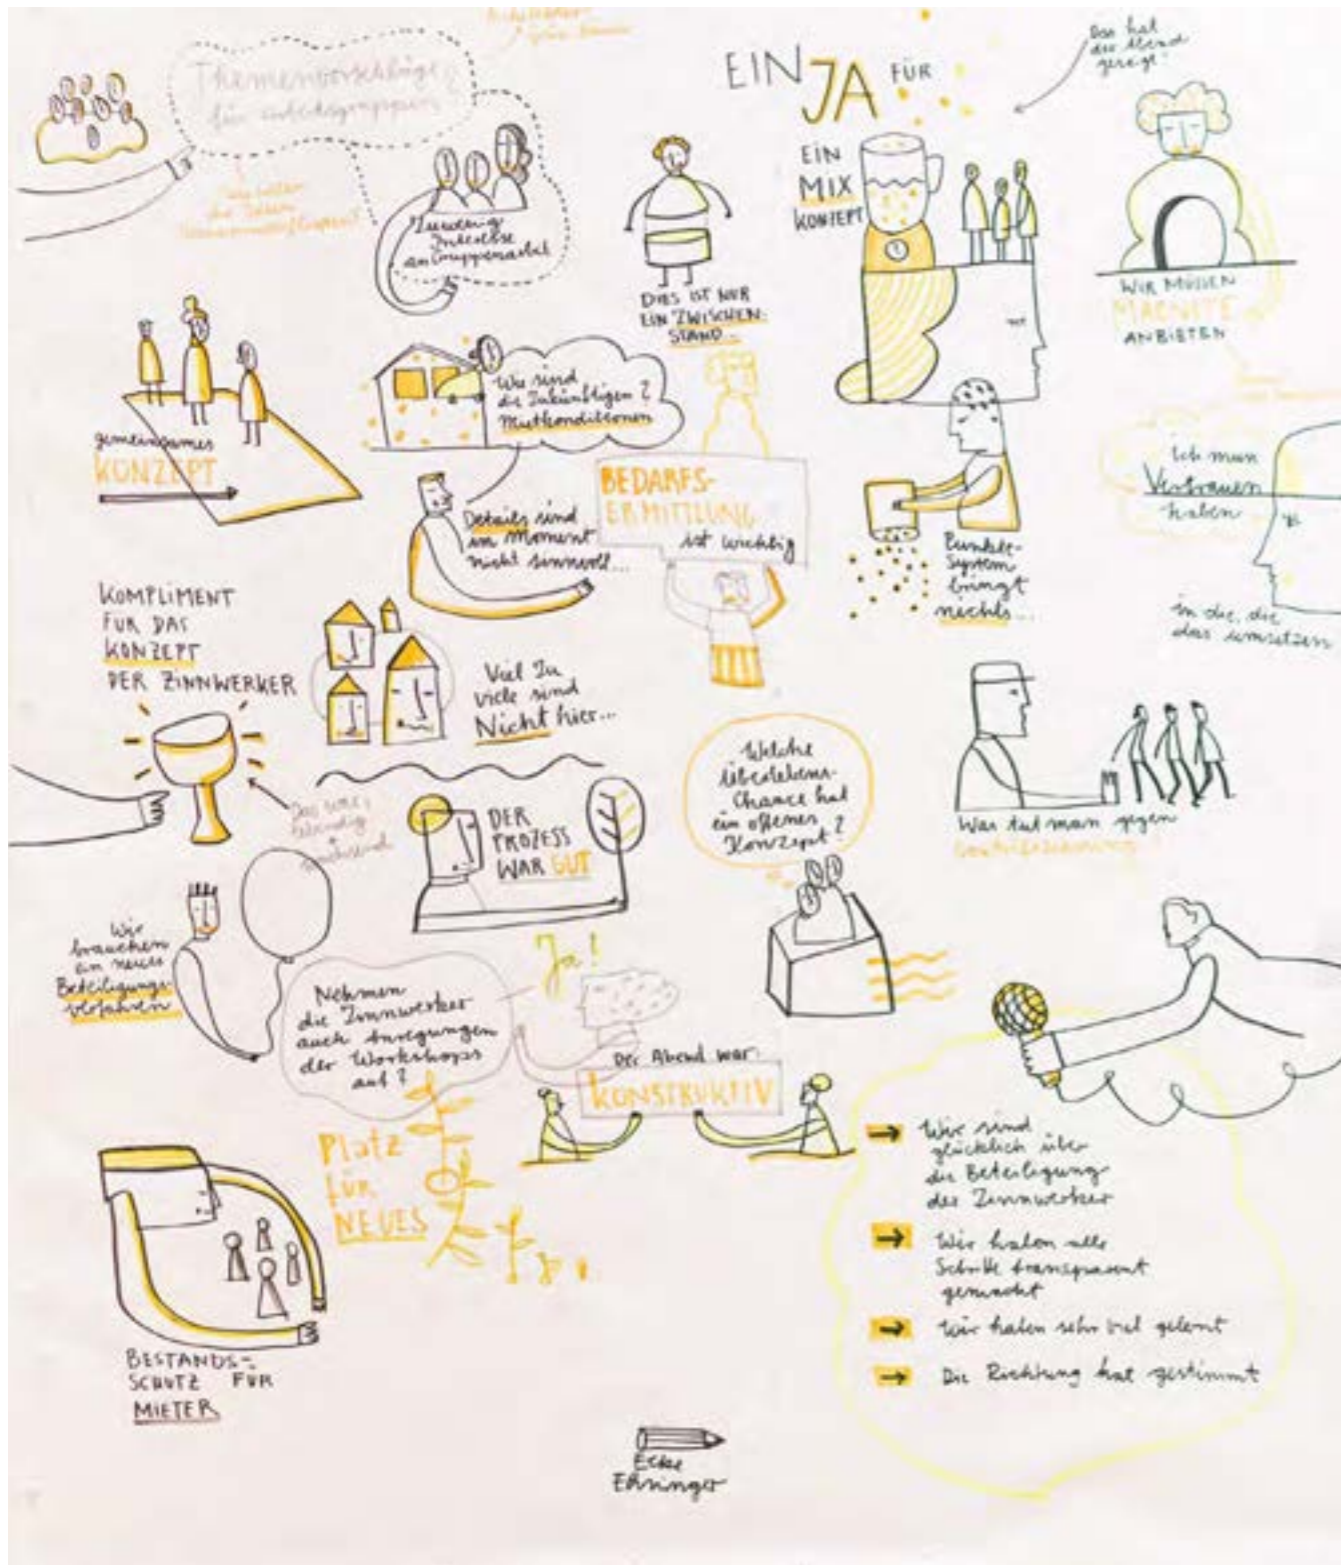 Themenvorschläge
für Arbeitsgruppen
Zuwenig
Interesse
an Gruppenarbeit
DIES IST NUR
EIN ZWISCHEN-
STAND...
EIN JA FÜR
EIN
MIX
KONZEPT
Das hat
der Abend
gezeigt!
WIR MÜSSEN
MAGNETE
ANBIETEN
gemeinsames
KONZEPT
Wie sind
die Zukünftigen ?
Mietkonditionen
Details sind
im Moment
nicht sinnvoll...
BEDARFS-
ERMITTLUNG
ist wichtig
Punkte-
System
bringt
nichts...
Ich muss
Vertrauen
haben
in die, die
das umsetzen
KOMPLIMENT
FÜR DAS
KONZEPT
DER ZINNWERKER
Viel Zu
viele sind
Nicht hier...
Das war
lebendig
Welche
Überlebens-
Chance hat
ein offenes
Konzept?
Was tut man gegen
DER
PROZESS
WAR GUT
Wir
brauchen
ein neues
Beteiligungs-
verfahren
Nehmen
die Zinnwerker
auch Anregungen
der Workshops
auf?
Ja!
Der Abend war
KONSTRUKTIV
Platz
FÜR
NEUES
→ Wir sind
glücklich über
die Beteiligung
der Zinnwerker
→ Wir haben alle
Schritte transparent
gemacht
→ Wir haben sehr viel gelernt
→ Die Richtung hat gestimmt
BESTANDS-
SCHUTZ FÜR
MIETER